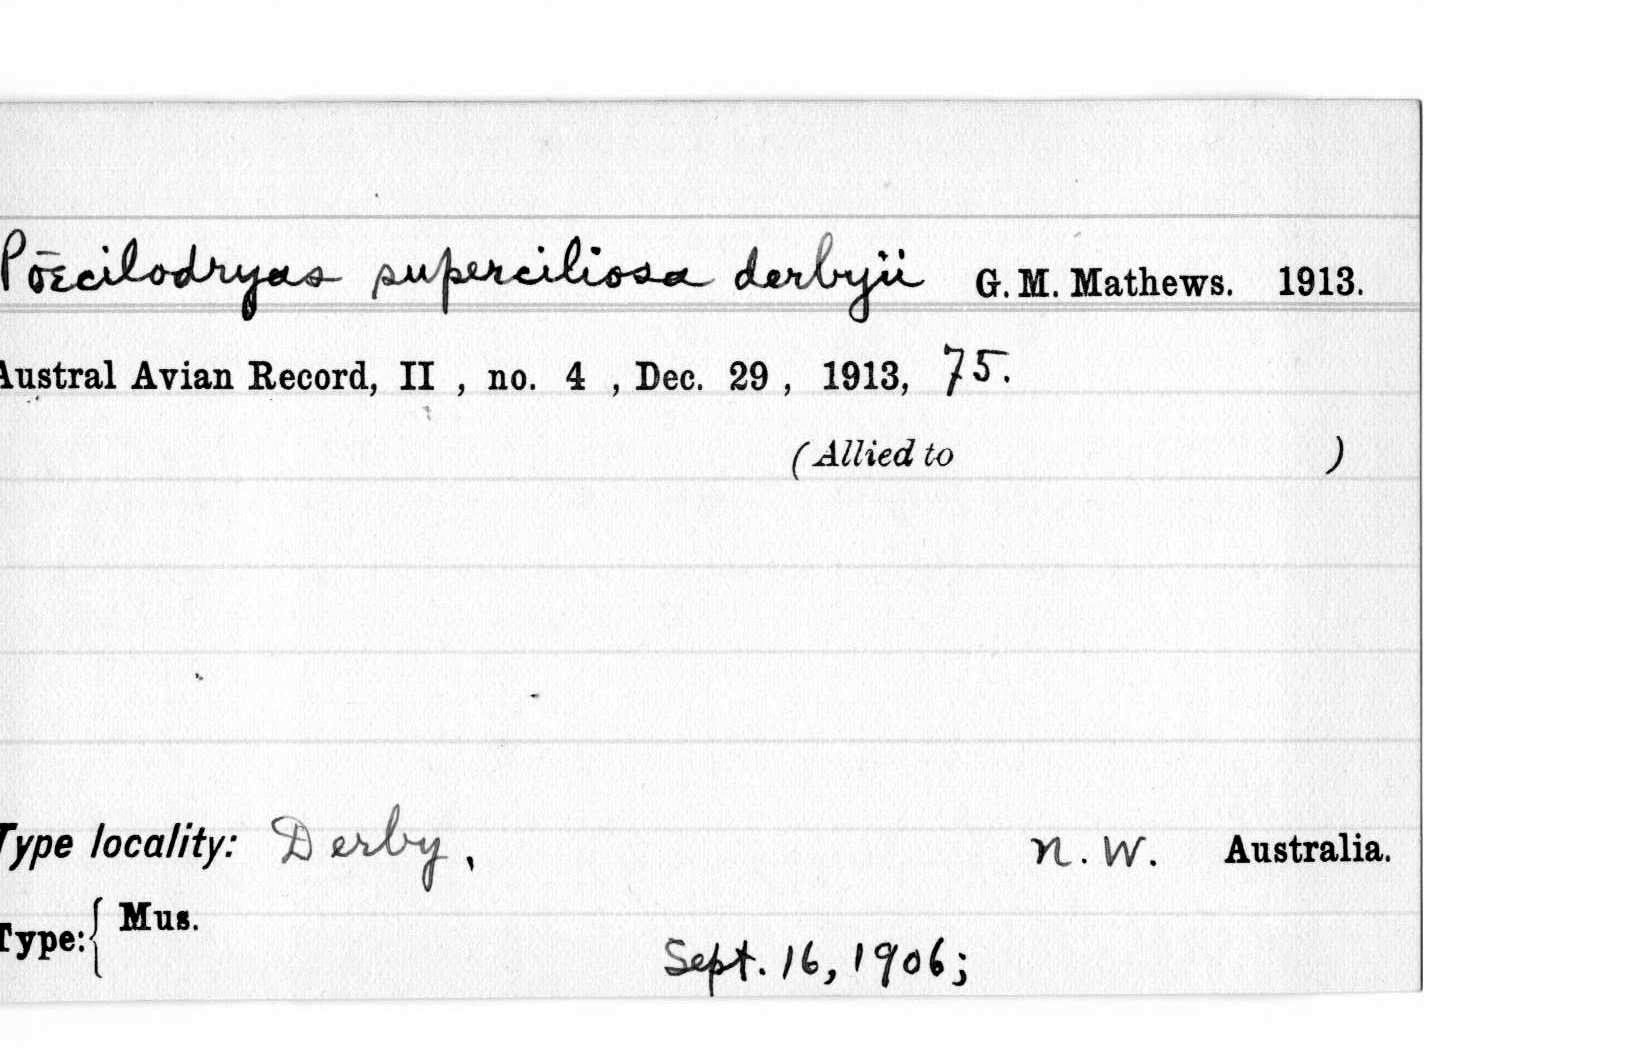 Pōēcilodryas superciliosa derbyii G. M. Mathews. 1913.
Austral Avian Record, II , no. 4 , Dec. 29 , 1913, 75.
(Allied to )
Type locality: Derby, N. W. Australia.
Type: { Mus.
Sept. 16, 1906;